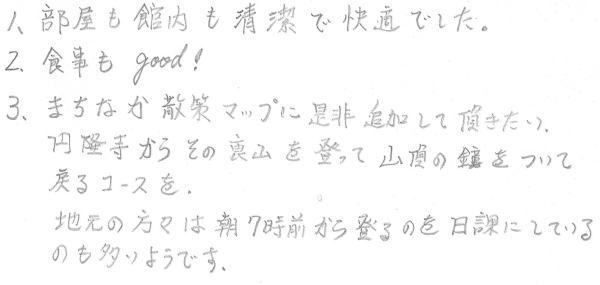 1、部屋も館内も清潔で快適でした。
2、食事も good!
3、まちなか散策マップに是非追加して頂きたい、
円隆寺からその裏山を登って山頂の鐘をついて
戻るコースを、
地元の方々は朝7時前から登るのを日課にしている
のも多いようです。